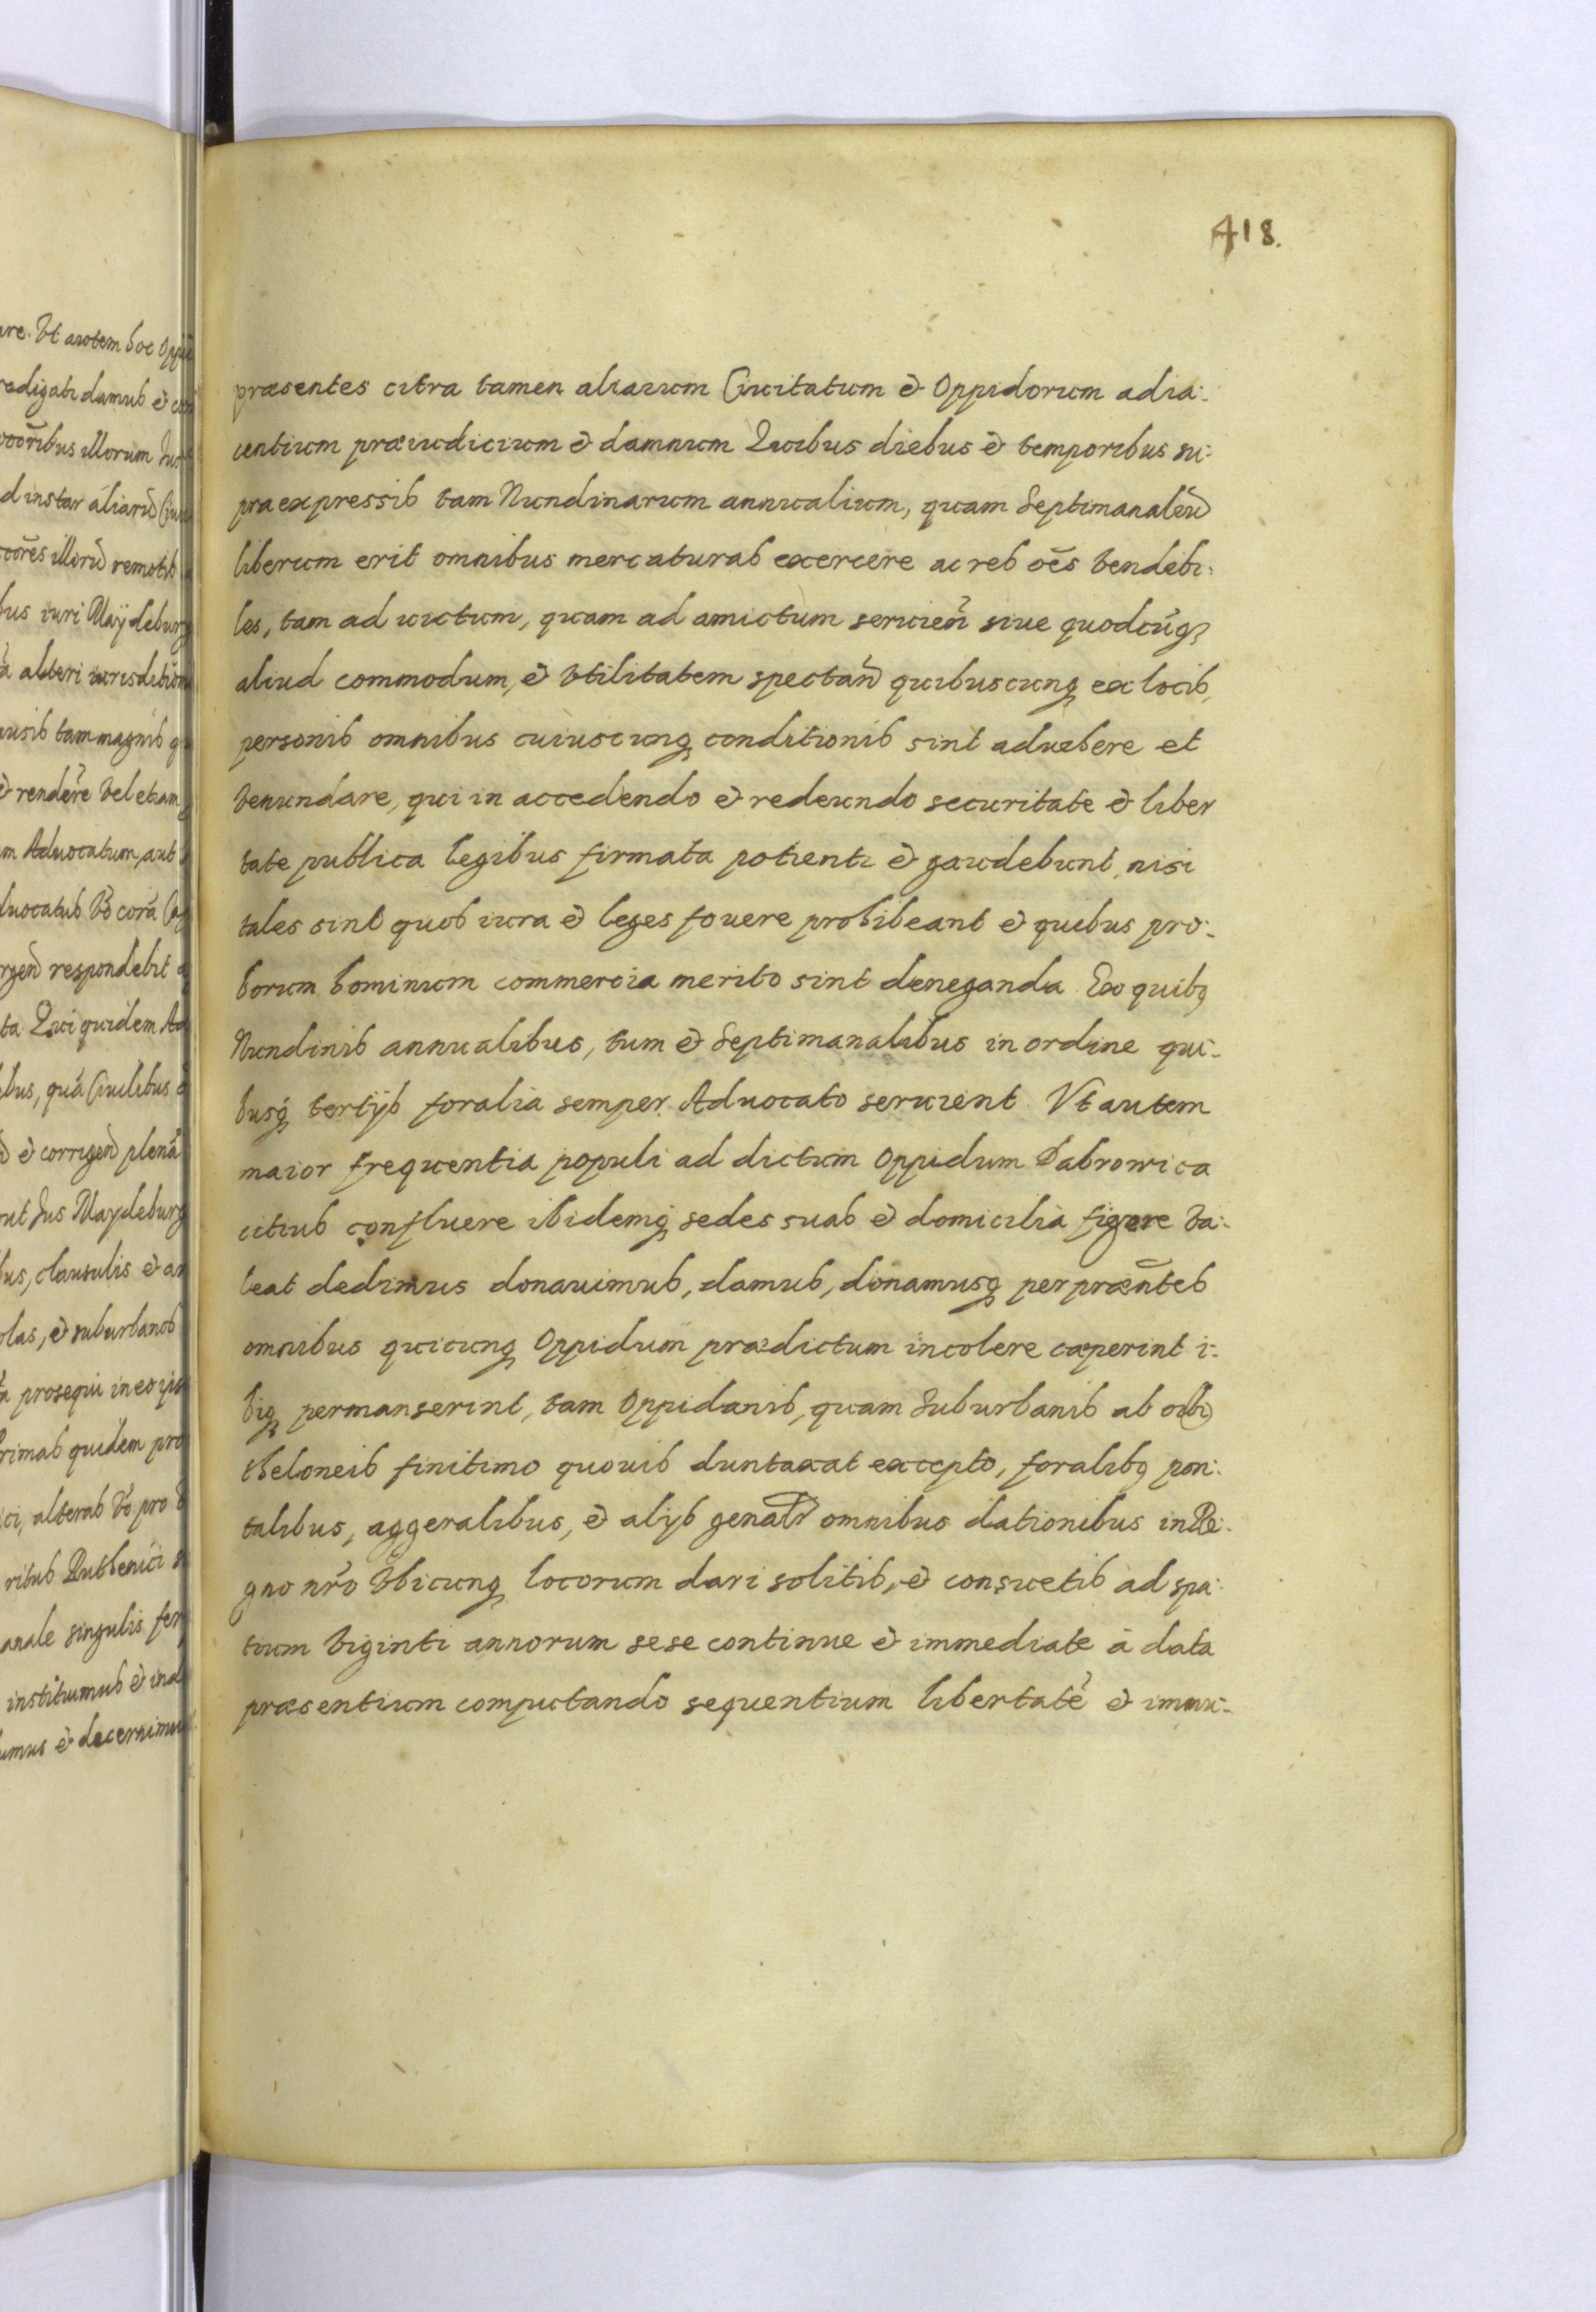 418.
præsentes citra tamen aliarum Ciuitatum & Oppidorum adia-
centium præiudicium & damnum Quibus diebus & temporibus su-
praexpressis tam Nundinarum annualium, quam Septimanaliũ
liberum erit omnibus mercaturas exercere ac res oẽs vendibi-
les, tam ad uictum, quam ad amictum seruieñ siue quodcũq
aliud commodum, & vtilitatem spectañ quibuscunq ex locis,
personis omnibus cuiuscunq conditionis sint aduehere et
venundare, qui in accedendo & redeundo securitate & liber
tate publica legibus firmata potienti & gaudebunt, nisi
tales sint quos iura & leges fouere prohibeant & quibus pro-
borum hominum commercia merito sint deneganda Ex quibq
Nundinis annualibus, tum & Septimanalibus in ordine qui-
busq tertijs foralia semper Aduocato seruient Vt autem
maior frequentia populi ad dictum Oppidum Dabrowica
citius confluere ibidemq sedes suas & domicilia figere va-
leat dedimus donauimus, damus, donamusq per præñtes
omnibus quicunq Oppidum prædictum incolere cæperint i-
biq permanserint, tam Oppidanis, quam Suburbanis ab oĩbq
theloneis finitimo quouis duntaxat excepto, foralibq pon-
talibus, aggeralibus, & alijs genalr omnibus dationibus in Re-
gno nr̃o vbicunq locorum dari solitis, & consuetis ad spa-
tium viginti annorum sese continue & immediate à data
præsentium computando sequentium libertatẽ & immu-
are. Vt autem hoc Oppi
redigati damus & con
illorum Jus
d instar aliarũ Ciui
illorũ remotis
bus iuri Maydeburg
alteri iurisdictiõn
ausis tam magnis q
& rendere vel etiam
m Aduocatum, aut
duocatus vo corã Ca
respondebit
ta Qui quidem Ad
ibus, quã Ciuilibus
& corrigen plenã
ut Jus Maydeburg
bus, clausulis & ar
olas, & suburbanos
prosequi in eo ips
rimas quidem pro
ici, alteras vo pro
ritus Ruthenici
anale singulis fer
instituimus & ind
umus & decernimu